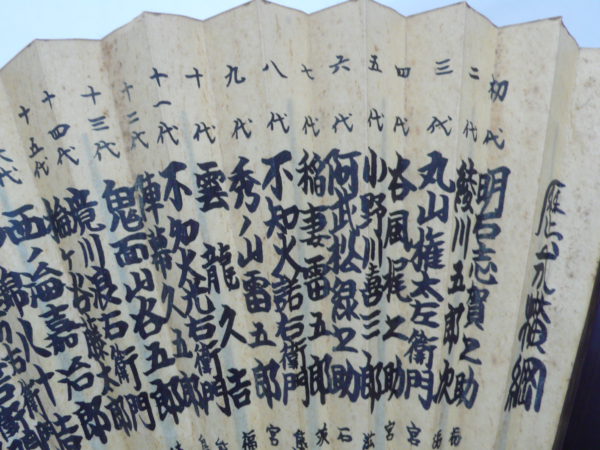 歴代横綱
初代 明石志賀之助
二代 綾川五郎次 栃
三代 丸山権太左衛門 宮
四代 谷風梶之助 宮
五代 小野川喜三郎 滋
六代 阿武松緑之助 石
七代 稲妻雷五郎 茨
八代 不知火諾右衛門 熊
九代 秀ノ山雷五郎 宮
十代 雲龍久吉 福
十一代 不知火光右衛門 熊
十二代 陣幕久五郎
十三代 鬼面山谷五郎
十四代 境川浪右衛門
十五代 梅ヶ谷藤太郎
六代 西ノ海嘉治郎
錦八十吉
右衛門